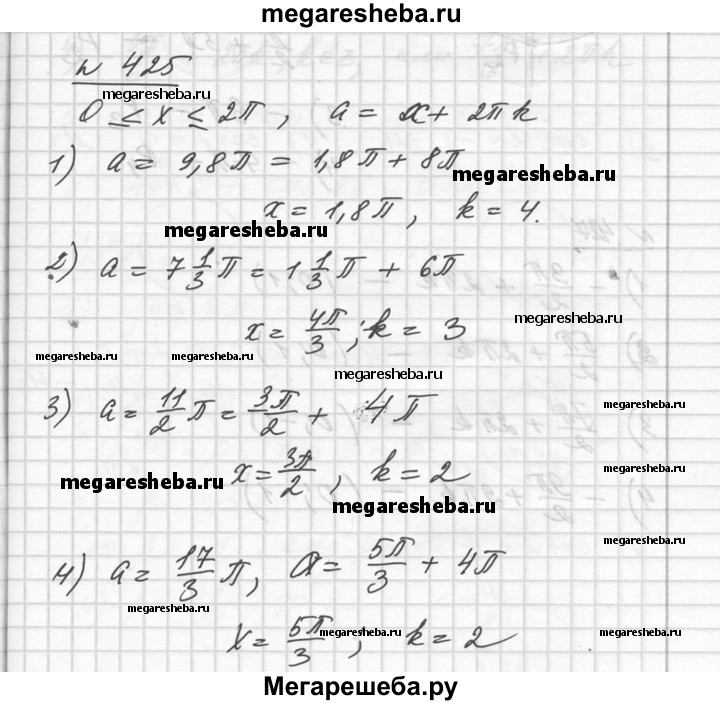 megaresheba.ru
№ 425
megaresheba.ru
0 ≤ x ≤ 2π, a = x + 2πk
1) a = 9,8π = 1,8π + 8π
megaresheba.ru
x = 1,8π, k = 4.
megaresheba.ru
2) a = 7 1/3 π = 1 1/3 π + 6π
x = 4π/3; k = 3
megaresheba.ru
megaresheba.ru
megaresheba.ru
megaresheba.ru
3) a = 11/2 π = 3π/2 + 4π
x = 3π/2, k = 2
megaresheba.ru
megaresheba.ru
megaresheba.ru
4) a = 17/3 π, a = 5π/3 + 4π
megaresheba.ru
x = 5π/3, k = 2
megaresheba.ru
Мегарешеба.ру